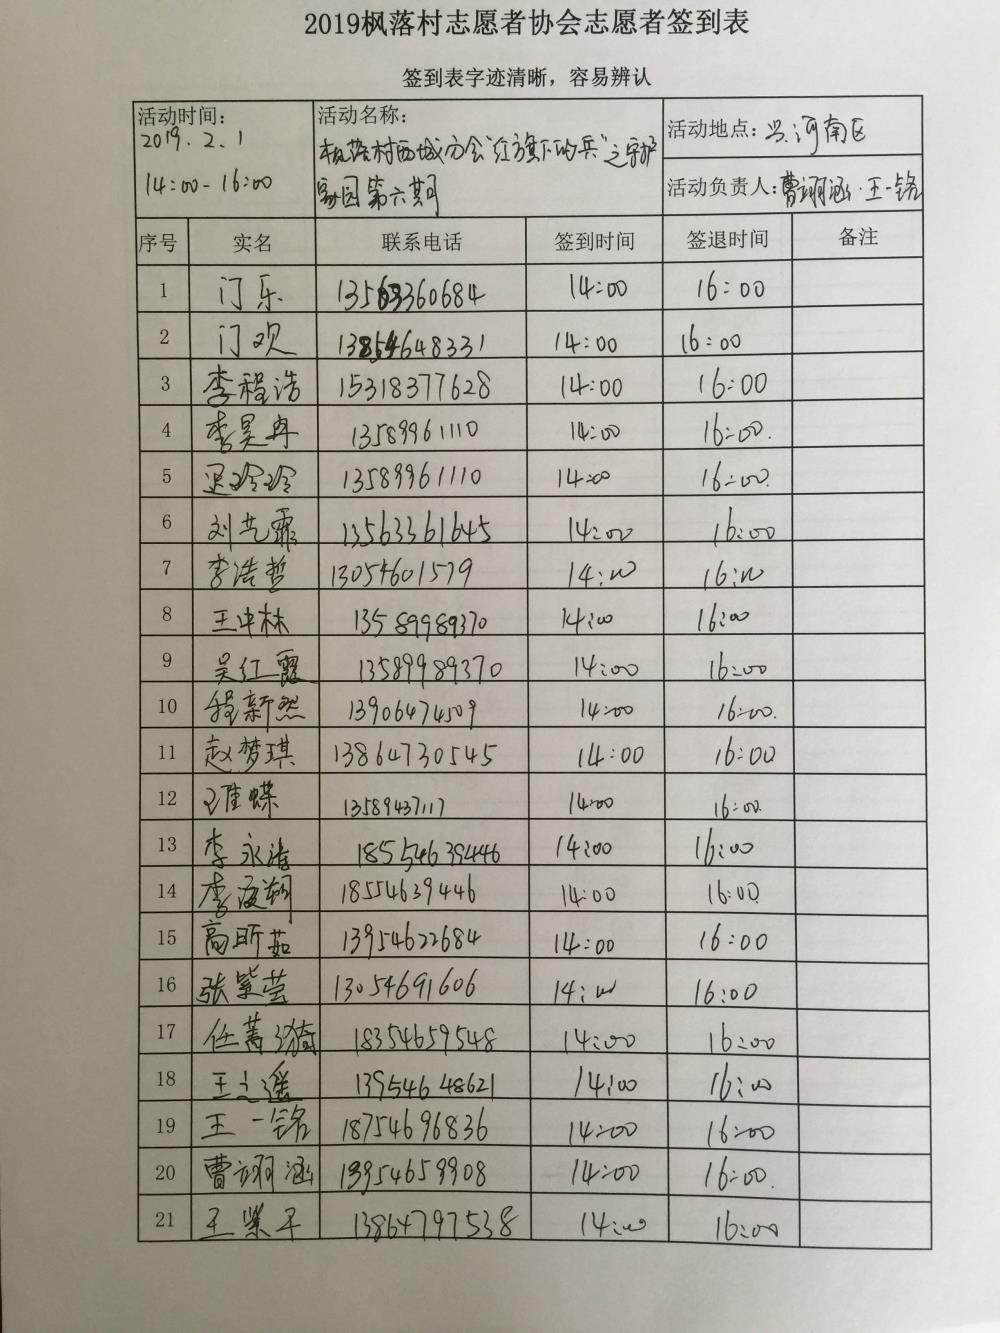 2019枫落村志愿者协会志愿者签到表
签到表字迹清晰，容易辨认
活动时间：
2019.2.1
14:00-16:00
活动名称：
枫落村西城分会“红旗下的兵”之守护
家园第六期
活动地点：兴河南区
活动负责人：曹翊涵·王一铭
序号 实名 联系电话 签到时间 签退时间 备注
1 门乐 13563360684 14:00 16:00
2 门欢 13854648331 14:00 16:00
3 李程浩 15318377628 14:00 16:00
4 李昊冉 13589961110 14:00 16:00.
5 玲玲 13589961110 14:00 16:00.
6 刘艺霏 13563361645 14:00 16:00
7 李浩哲 13054601579 14:00 16:00
8 王中林 13589989370 14:00 16:00
9 吴红霞 13589989370 14:00 16:00
10 程新然 13906474509 14:00 16:00.
11 赵梦琪 13864730545 14:00 16:00
12 蝶 13589437117 14:00 16:00.
13 李永浩 18554639446 14:00 16:00
14 李 18554639446 14:00 16:00.
15 高昕茹 13954622684 14:00 16:00
16 张紫莹 13054691606 14:00 16:00
17 任菁 18354659548 14:00 16:00
18 王之遥 13954648621 14:00 16:00
19 王一铭 18754696836 14:00 16:00
20 曹翊涵 13954659908 14:00 16:00.
21 王紫千 13864797538 14:00 16:00